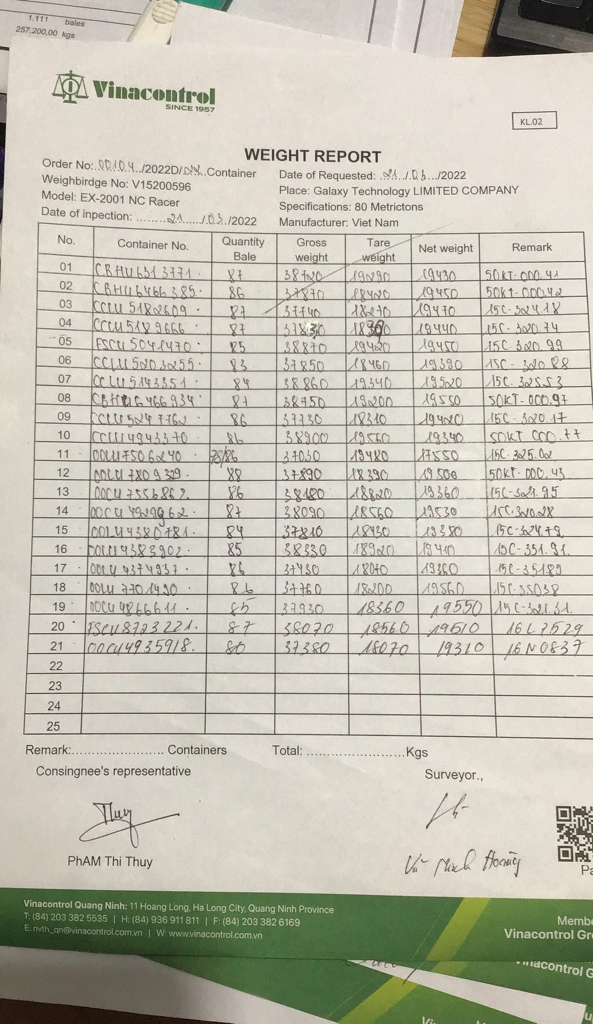 1.111 bales
257.200,00 kgs
Vinacontrol
SINCE 1957
KL.02
WEIGHT REPORT
Order No: 0010.4./2022D/ Container
Date of Requested: 21../.03../2022
Weighbirdge No: V15200596
Place: Galaxy Technology LIMITED COMPANY
Model: EX-2001 NC Racer
Specifications: 80 Metrictons
Date of inpection: .........21..../03./2022
Manufacturer: Viet Nam
No. Container No. Quantity Bale Gross weight Tare weight Net weight Remark
01 CBHU6313771. 87 38720 19290 19430 50KT-000.41
02 CBHU6466385. 86 37870 18420 19450 50KT-000.42
03 CCLU5182609. 87 37740 18270 19470 15C-324.18
04 CCLU5189666 87 19440 15C-320.74
05 FSCU5041470. 85 38870 19420 19450 15C-320.99
06 CCLU5203255. 83 37850 18460 19390 15C-320.88
07 CCLU5143351. 84 38860 19340 19520 15C-325.53
08 CBHU6466934. 87 38750 19200 19550 50KT-000.97
09 CCLU5247762 86 37730 18310 19420 15C-320.17
10 CCLU4943370 86 38900 19560 19340 50KT 000.77
11 OOLU7506240 37030 19480 17550 15C-325.02
12 OOLU7809329 88 37890 18390 19500 50KT-000.43
13 OOCU7556862. 86 38180 18820 19360 15C-321.95
14 87 38090 18560 19530 15C-320.28
15 OOLU4380781. 84 37810 18430 19380 15C-324.79
16 OOLU4383902. 85 38330 18920 19410 15C-351.91
17 OOLU4374937. 86 37430 18070 19360 15C-35189
18 OOLU7701490. 86 37760 18200 19560 15C-35038
19 OOCU4866611. 85 37930 18360 19550 15C-321.31
20 FSCU8723221. 87 38070 18560 19510 16L7529
21 OOCU4935918. 80 37380 18070 19310 16N0837
22
23
24
25
Remark:...................... Containers Total: .......................Kgs
Consingnee's representative
Surveyor.,
Thuy
PhAM Thi Thuy
Vũ Minh Hoàng
Vinacontrol Quang Ninh: 11 Hoang Long, Ha Long City, Quang Ninh Province
T: (84) 203 382 5535 | H: (84) 936 911 811 | F: (84) 203 382 6169
E: nvth_qn@vinacontrol.com.vn | W: www.vinacontrol.com.vn
Vinacontrol